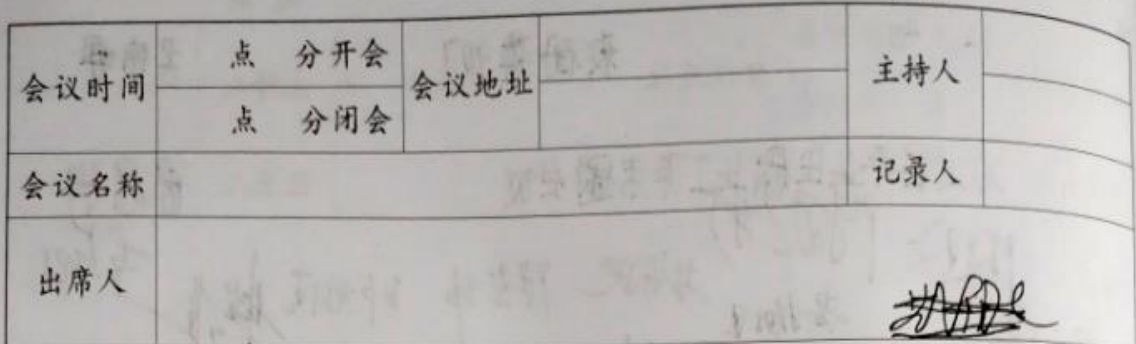 会议时间 点 分开会 会议地址 主持人
点 分闭会
会议名称 记录人
出席人